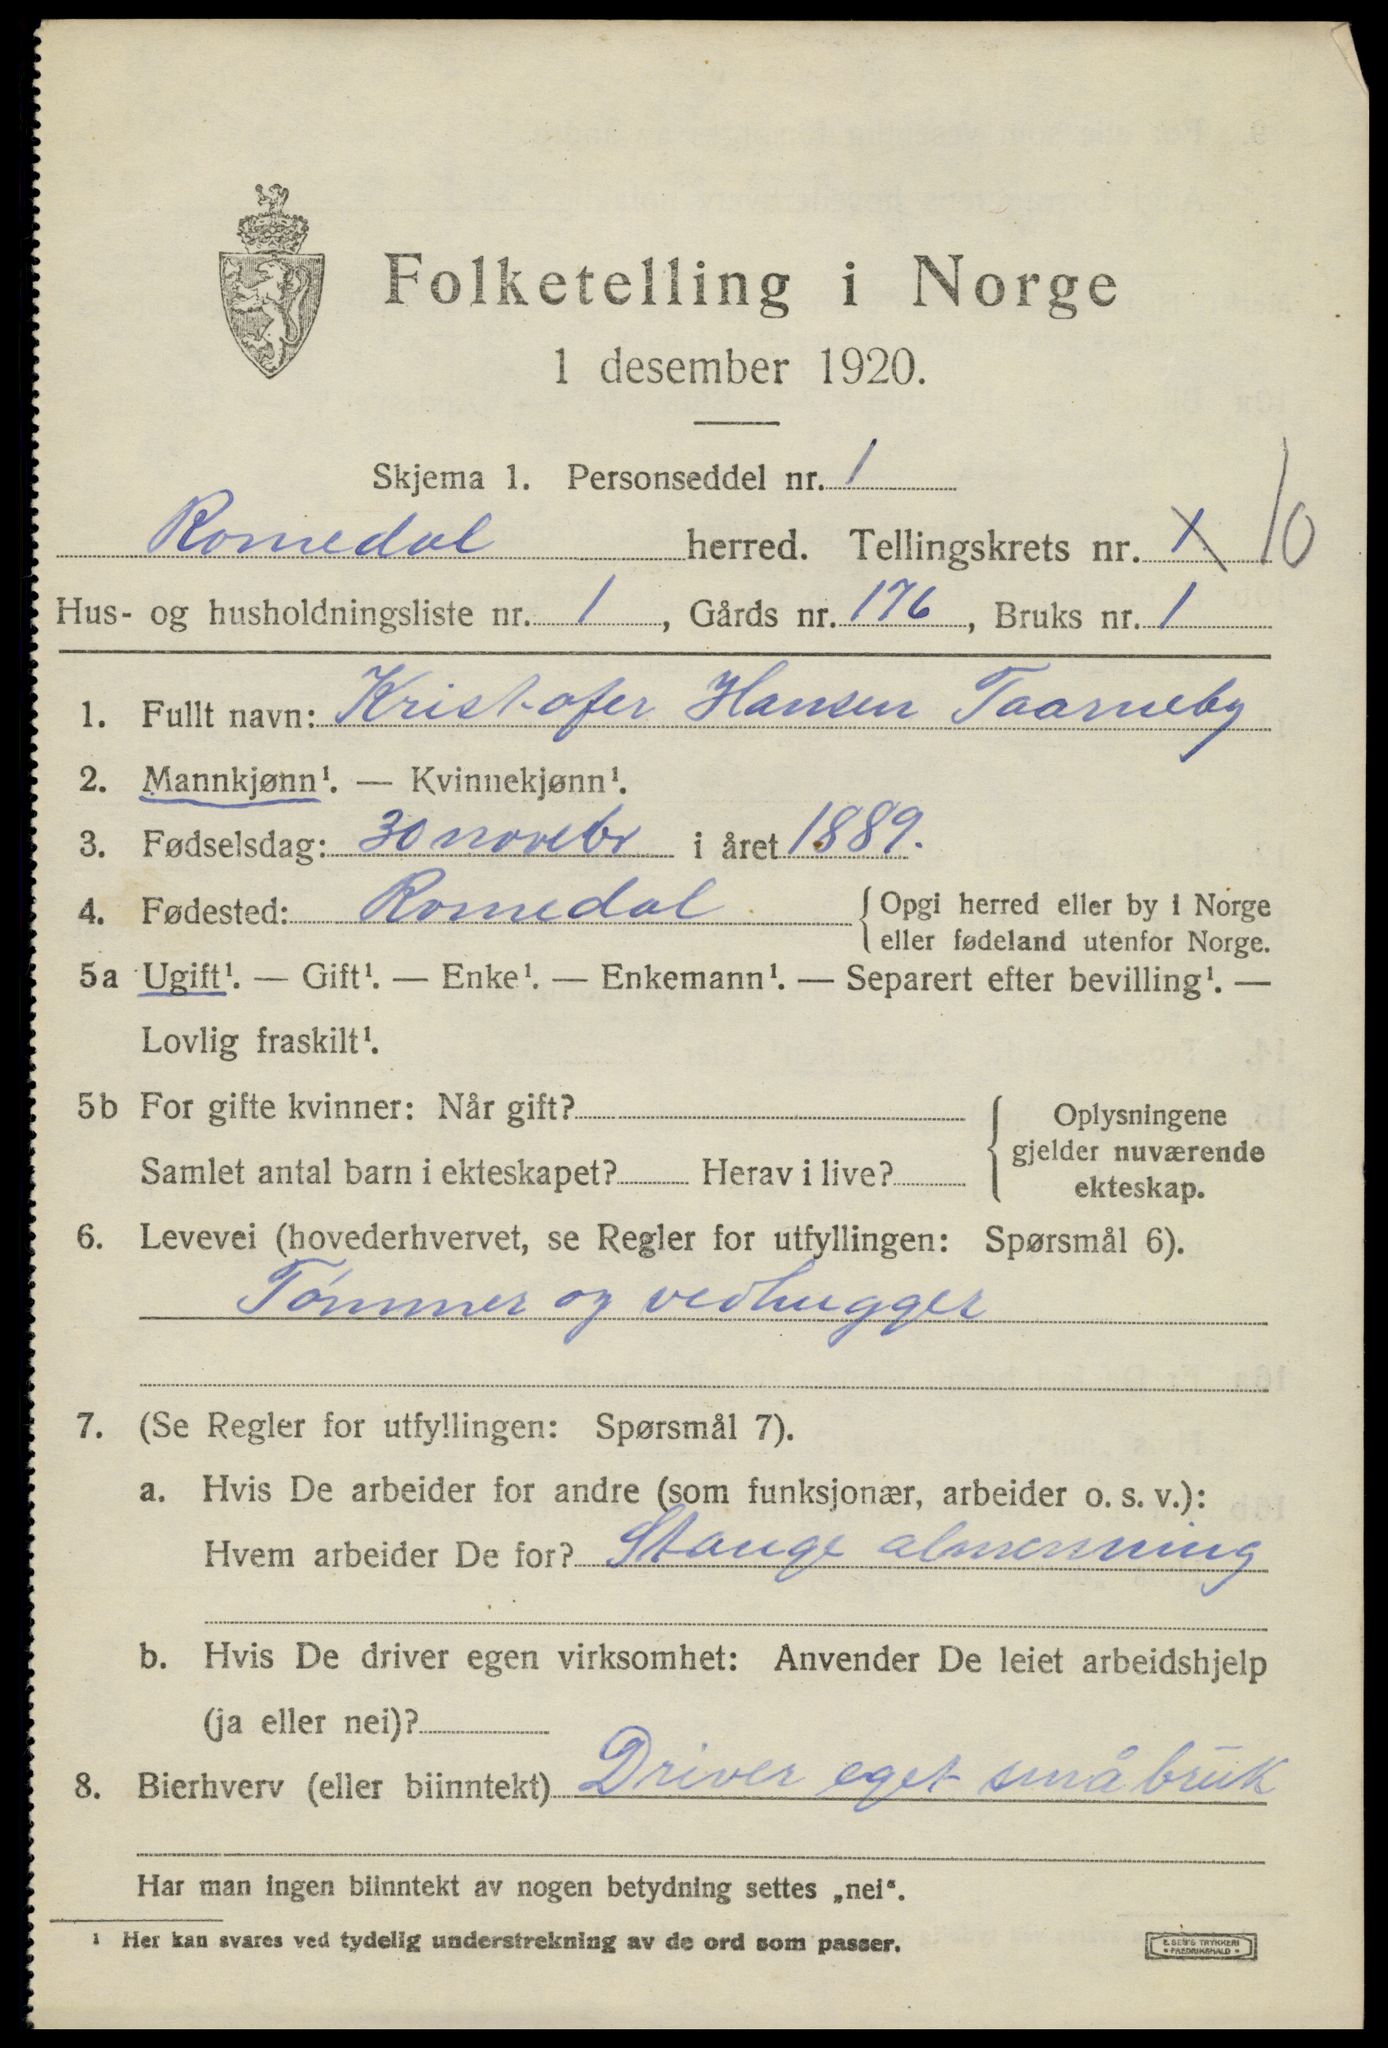 Folketelling i Norge
1 desember 1920.
Skjema 1. Personseddel nr. 1
Romedal herred. Tellingskrets nr. 1 10
Hus- og husholdningsliste nr. 1, Gårds nr. 176, Bruks nr. 1
1. Fullt navn: Kristofer Hansen Taarneby
2. Mannkjønn¹. — Kvinnekjønn¹.
3. Fødselsdag: 30 novebr i året 1889.
4. Fødested: Romedal { Opgi herred eller by i Norge
eller fødeland utenfor Norge.
5a Ugift¹. — Gift¹. — Enke¹. — Enkemann¹. — Separert efter bevilling¹. —
Lovlig fraskilt¹.
5b For gifte kvinner: Når gift? { Oplysningene
gjelder nuværende
Samlet antal barn i ekteskapet? Herav i live? ekteskap.
6. Levevei (hovederhvervet, se Regler for utfyllingen: Spørsmål 6).
Tømmer og vedhugger
7. (Se Regler for utfyllingen: Spørsmål 7).
a. Hvis De arbeider for andre (som funksjonær, arbeider o. s. v.):
Hvem arbeider De for? Stange almenning
b. Hvis De driver egen virksomhet: Anvender De leiet arbeidshjelp
(ja eller nei)?
8. Bierhverv (eller biinntekt) Driver eget småbruk
Har man ingen biinntekt av nogen betydning settes „nei“.
¹ Her kan svares ved tydelig understrekning av de ord som passer.
E. SEM'S TRYKKERI
• FREDRIKSHALD •